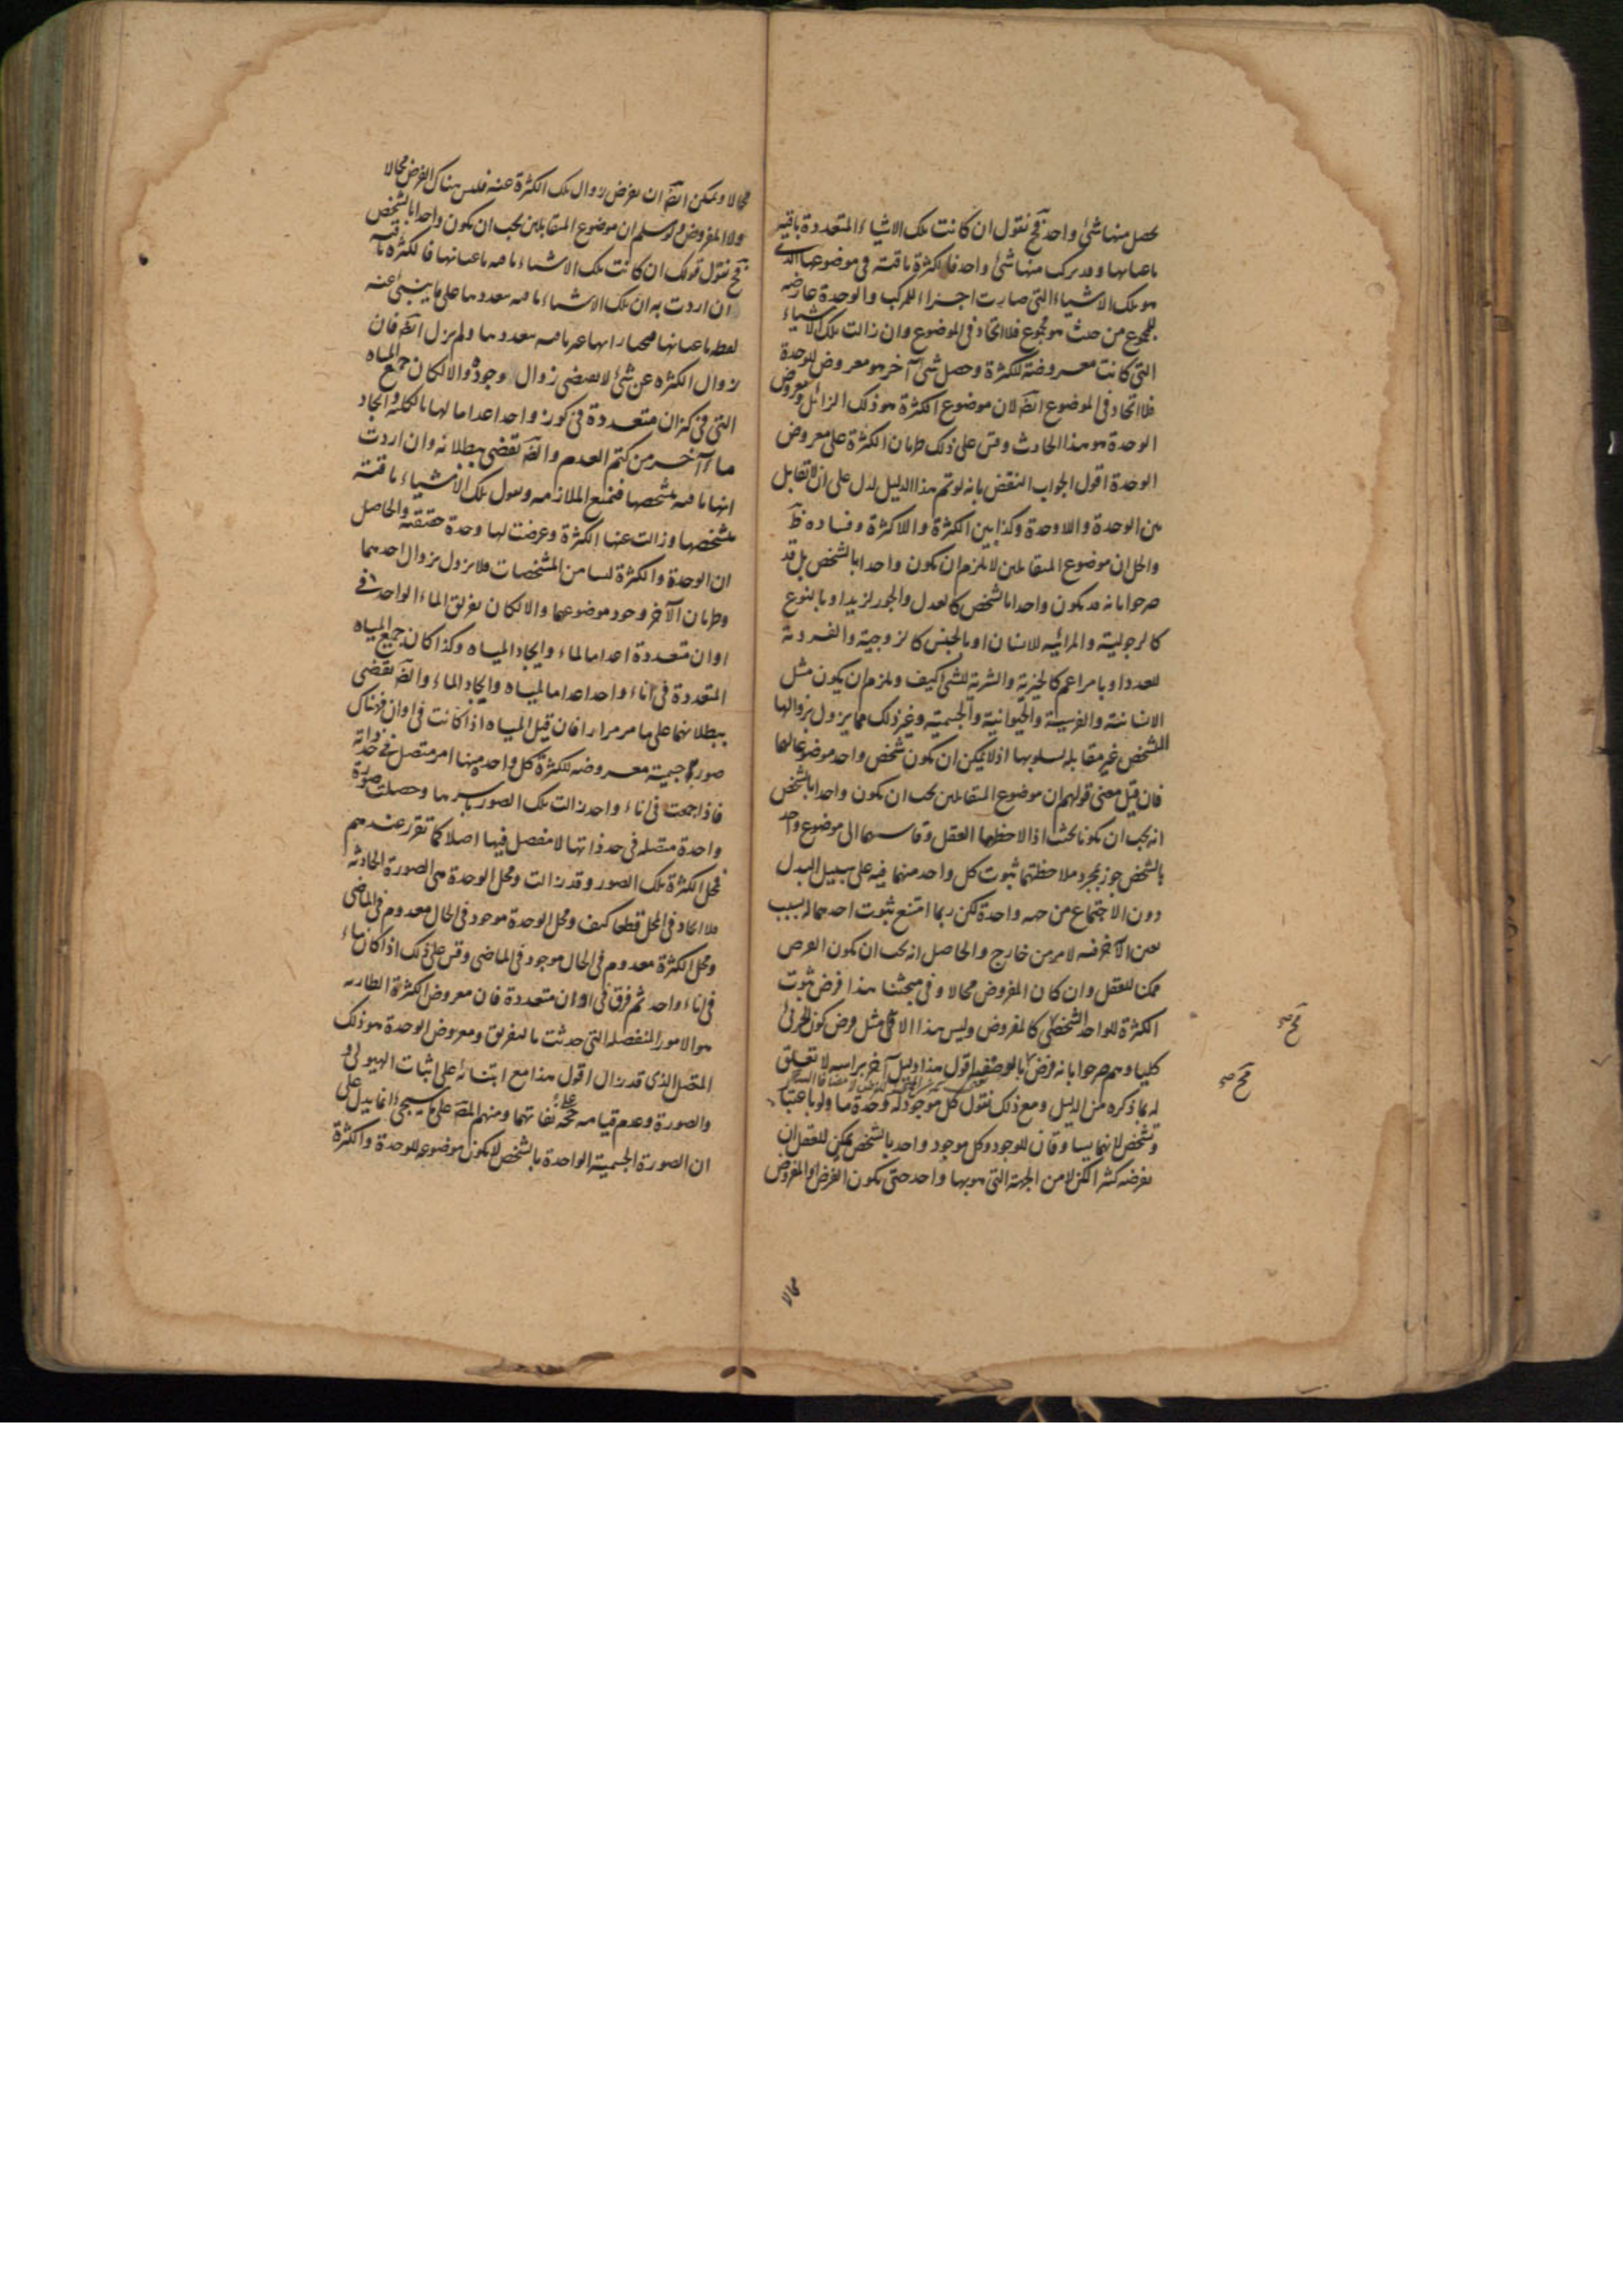 يحصل منها شئ واحد فح نقول ان كانت تلك الاشياء المتعددة باقية
باعيانها وقد تركب منها شئ واحد فالكثرة باقية فى موضوعها الذى
هو تلك الاشياء التى صارت اجزاء للمركب والوحدة عارضه
للمجموع من حيث هو مجموع فلا اتحاد فى الموضوع وان زالت تلك الاشياء
التى كانت معروضة للكثرة وحصل شئ آخر هو معروض للوحدة
فلا اتحاد فى الموضوع ايضا لان موضوع الكثرة هو ذلك الزائل ومعروض
الوحدة هو هذا الحادث وقس على ذلك طريان الكثرة على معروض
الوحدة اقول الجواب النقض بانه لو تم هذا الدليل لدل على ان لا تقابل
بين الوحدة واللاوحدة وكذا بين الكثرة واللاكثرة وفساده ظ
والحل ان موضوع المتقابلين لا يلزم ان يكون واحدا بالشخص بل قد
صرحوا بانه قد يكون واحدا بالشخص كالعدل والجور لزيد او بالنوع
كالرجولية والمرائية للانسان او بالجنس كالزوجية والفردية
للعدد او بامر اعم كالخيرية والشرية للشئ كيف ويلزم ان يكون مثل
الانسانية والفرسية والحيوانية والجسمية وغير ذلك مما يزول بزوالها
الشخص غير مقابلة لسلوبها اذ لا يمكن ان يكون شخص واحد موضوعا لهما
فان قيل معنى قولهم ان موضوع المتقابلين يجب ان يكون واحدا بالشخص
انه يجب ان يكونا بحيث اذا لاحظهما العقل وقاسهما الى موضوع واحد
بالشخص جوز بمجرد ملاحظتهما ثبوت كل واحد منهما فيه على سبيل البدل
دون الاجتماع من جهه واحدة لكن ربما امتنع ثبوت احدهما له بسبب
تعين الآخر فيه لامر من خارج والحاصل انه يجب ان يكون الفرض
ممكنا للعقل وان كان المفروض محالا وفى مبحثنا هذا فرض ثبوت
الكثرة للواحد الشخصى كالمفروض وليس هذا الا مثل فرض كون الجزئى
كليا وهم صرحوا بانه فرض اقول هذا دليل آخر براسه لا تعلق
له بما ذكره من الدليل ومع ذلك نقول كل موجود له وحدة ما ولو باعتبار
وتشخص لانهما يساوقان للوجود وكل موجود واحد بالشخص يمكن للعقل ان
يفرضه كثيرا لكن لا من الجهة التى هو بها واحد حتى يكون الفرض او المفروض
محالا
محالا ويمكن ايضا ان يفرض زوال تلك الكثرة عنه فليس هناك الفرض محالا
ولا المفروض ولو سلم ان موضوع المتقابلين يجب ان يكون واحدا بالشخص
فح نقول قولك ان كانت تلك الاشياء باقيه باعيانها فالكثرة باقيه
ان اردت به ان تلك الاشياء باقيه بعددها على ما ينبئ عنه
لفظه باعيانها فنختار انها غير باقيه بعددها ولم يزل ايضا فان
زوال الكثره عن شئ لا يقتضى زوال وجوده والا لكان جمع المياه
التى فى كيزان متعددة فى كوز واحد اعداما لها بالكلية وايجاد
ماء آخر من كتم العدم وايضا تقضى ببطلانه وان اردت
انها باقيه بتشخصها فنمنع الملازمه ونقول تلك الاشياء باقية
بتشخصها وزالت عنها الكثرة وعرضت لها وحدة حقيقية والحاصل
ان الوحدة والكثرة ليسا من المشخصات فلا يزول بزوال احدهما
وطريان الآخر وجود موضوعهما والا لكان تفريق الماء الواحد فى
اوان متعددة اعداما لماء وايجاد المياه وكذا كان جميع المياه
المتعددة فى اناء واحد اعداما لمياه وايجاد الماء وايضا تقضى
ببطلانهما على ما مر مرارا فان قيل المياه اذا كانت فى اوان فهناك
صور جسمية معروضه للكثرة كل واحدة منها امر متصل فى حد ذاته
فاذا جمعت فى اناء واحد زالت تلك الصور باسرها وحصلت صورة
واحدة متصله فى حد ذاتها لا مفصل فيها اصلا كما تقرر عندهم
فمحل الكثرة تلك الصور وقد زالت ومحل الوحدة هى الصورة الحادثة
فلا اتحاد فى المحل قطعا كيف ومحل الوحدة موجود فى الحال معدوم فى الماضى
ومحل الكثرة معدوم فى الحال موجود فى الماضى وقس على ذلك اذا كان ماء
فى اناء واحد ثم فرق فى اوان متعددة فان معروض الكثرة الطاريه
هو الامور المنفصله التى حدثت بالتفريق ومعروض الوحدة هو ذلك
المتصل الذى قد زال اقول هذا مع ابتنائه على اثبات الهيولى و
والصورة وعدم قيامه حجة على نفاتهما ومنهم المص على ما سيجئ انما يدل على
ان الصورة الجسمية الواحدة بالشخص لا يكون موضوعه للوحدة والكثرة